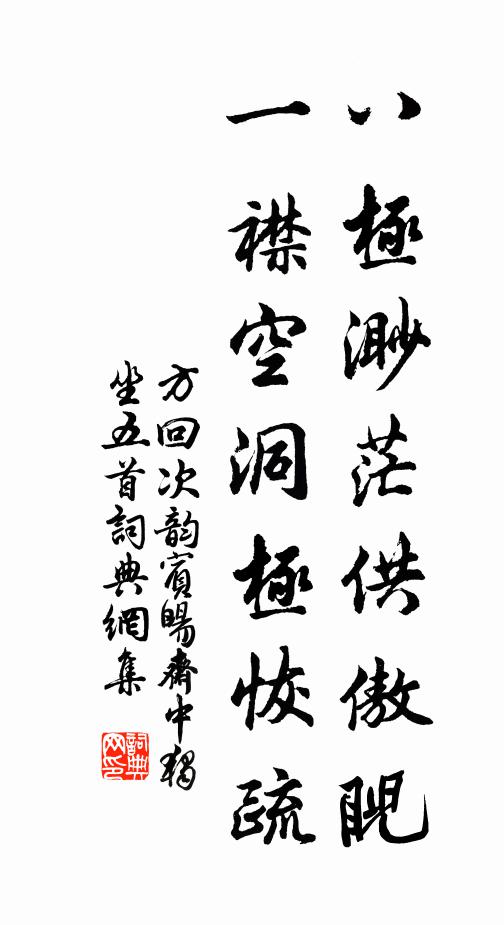 八極渺茫供傲睨
一襟空洞極恢疏
方回次韵賓暘齋中獨
坐五首詞典網集
詞典
网印